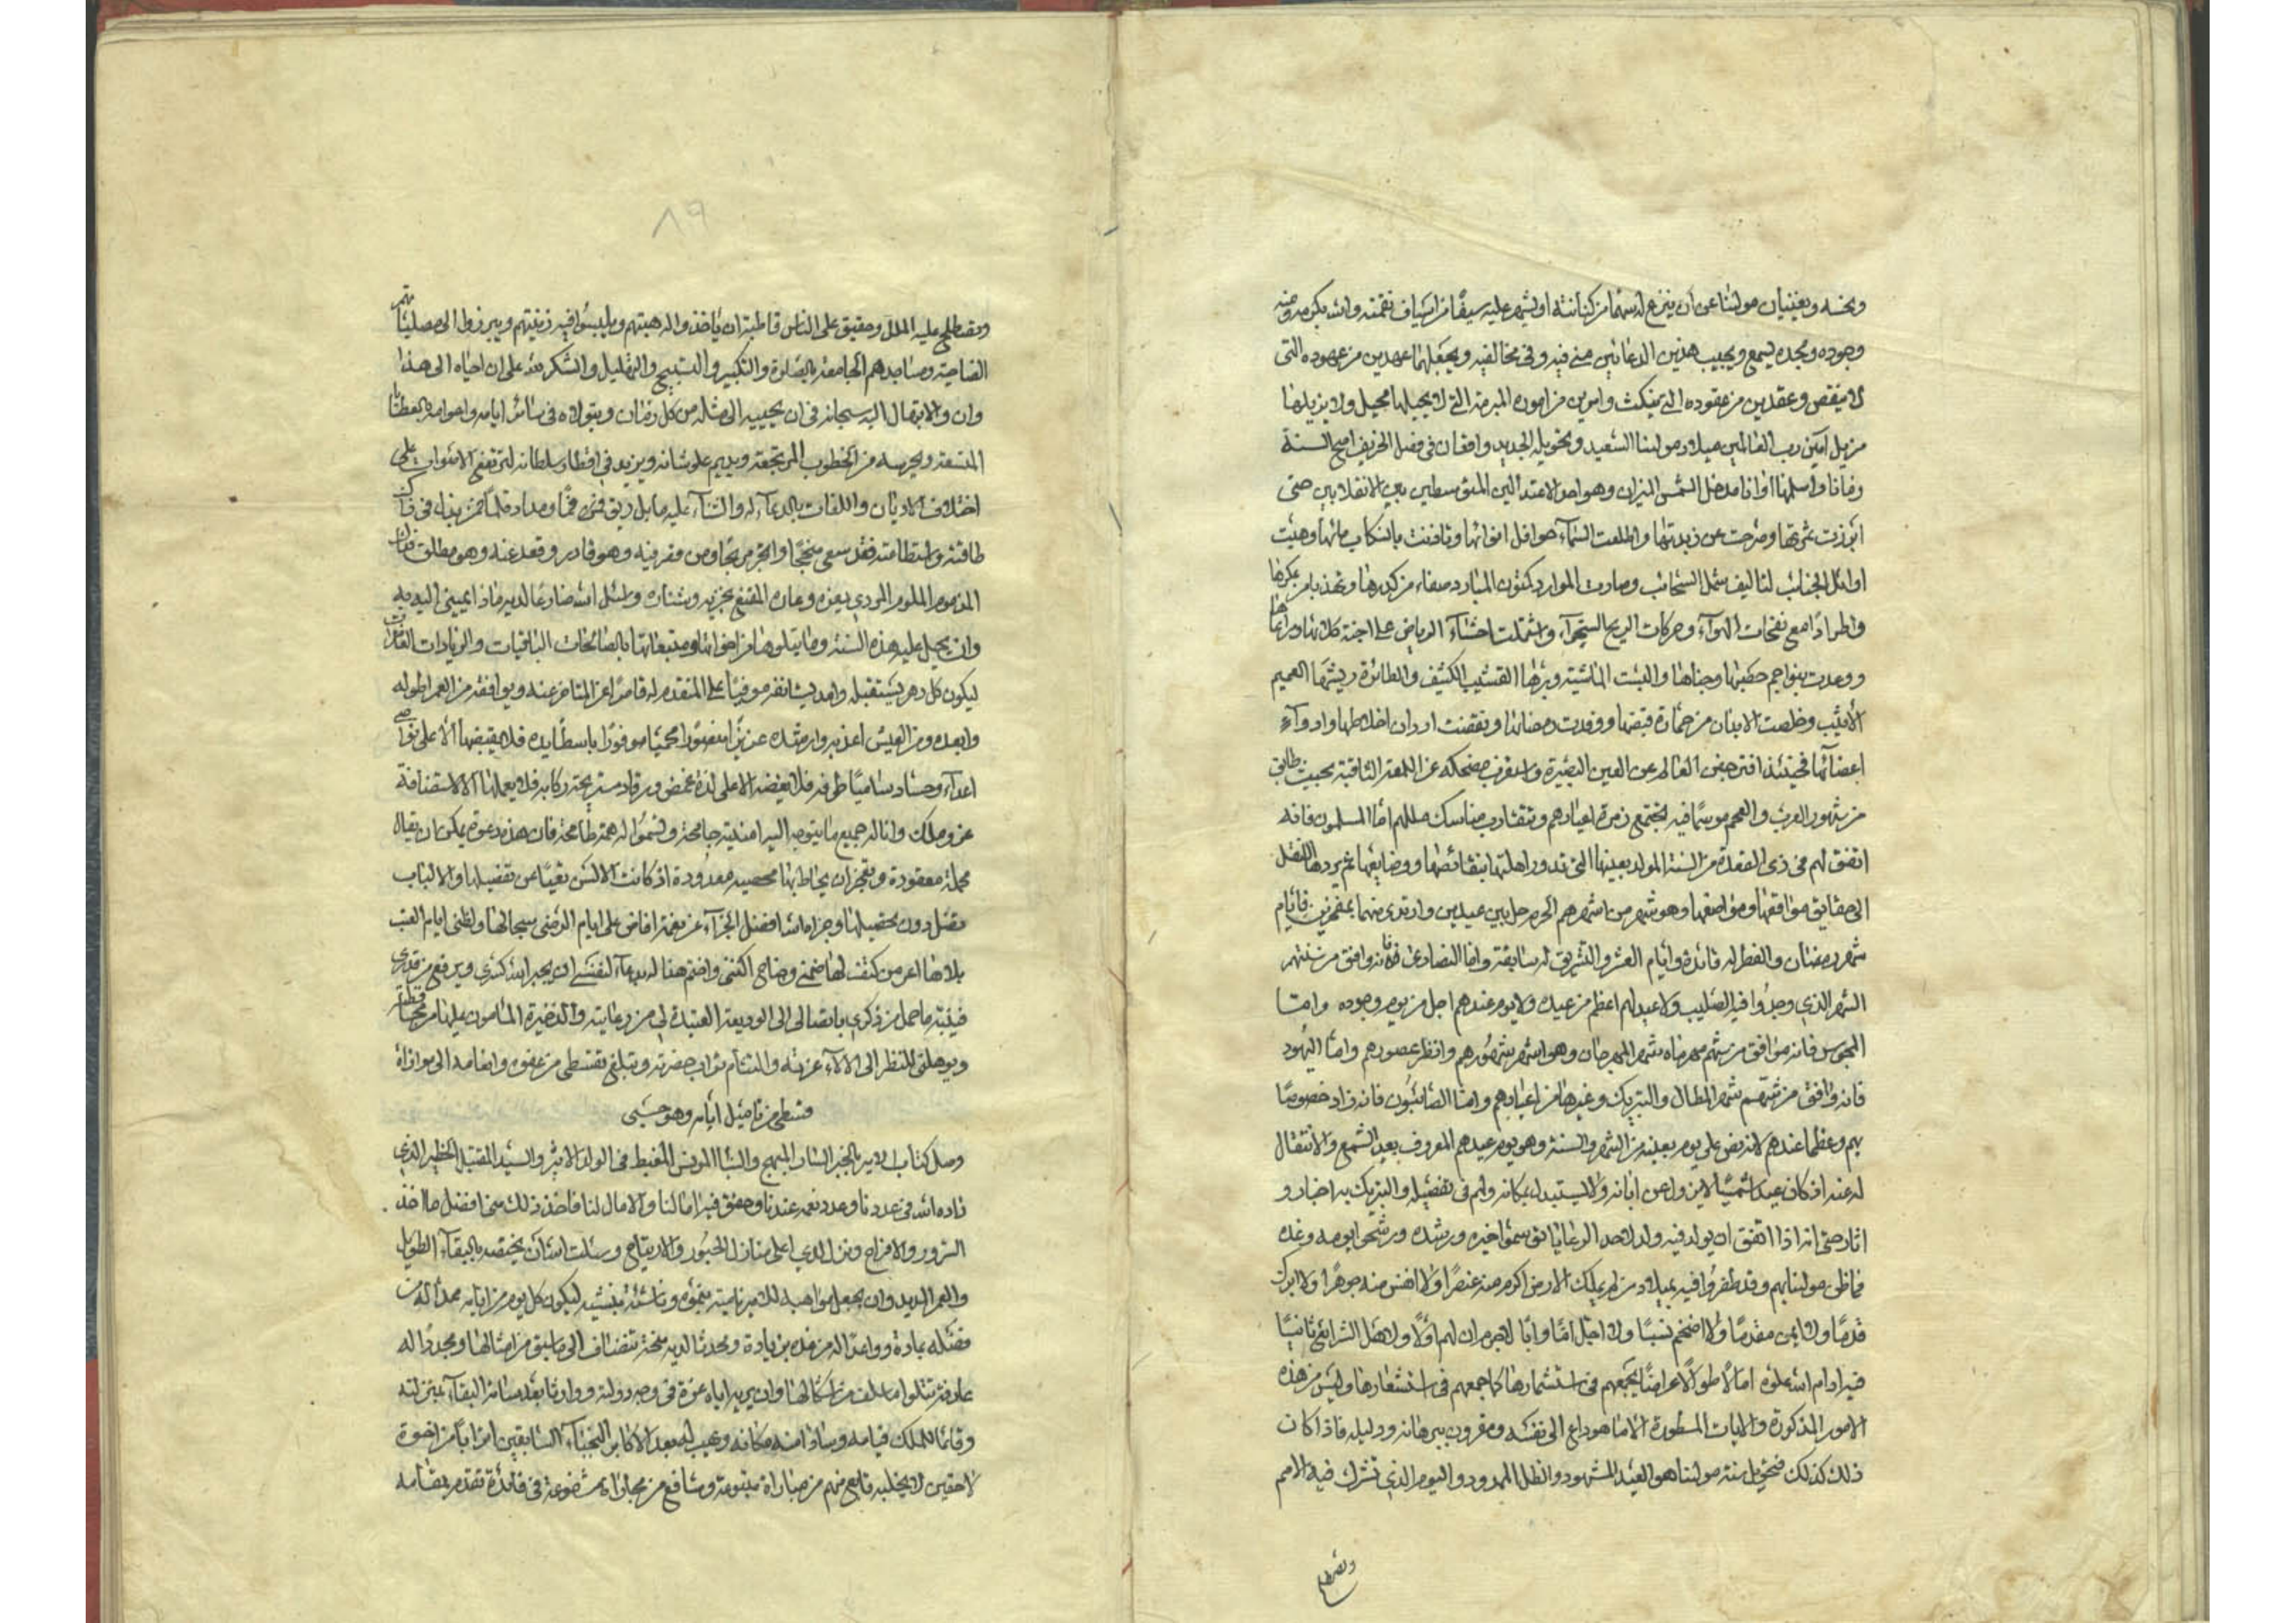 وبخسه ويغنيان مولانا عن أن ينزع له سهما من كنانته او يشهر عليه سيفا من اسياف نقمته والله بكرمه ومنه
وجوده ومجده يسمع ويجيب هذين الدعائين مني فيه وفي مخالفيه ويجعلهما عهدين من عهوده التي
لا تنقض وعقدين من عقوده التي لا تنكث وامرين من اموره المبرمة التي لا يحيلها محيل ولا يزيلها
مزيل آمين رب العالمين ميلاد مولانا السعيد وتحويله الجديد وافقان في فصل الخريف اصح السنة
زمانا واسلمها اوانا مدخل الشمس الميزان وهو احد الاعتدالين المتوسطين بين الانقلابين حتى
ابرزت ثمرتها وصرحت عن زبدتها واطلعت السماء حوافل انوائها وتاذنت بانسكاب مائها وهبت
اوائل الجنائب لتاليف شمل السحائب وصارت الموارد كمتون المبارد صفاء من كدرها وتهذبا من عكرها
واطرادا مع نفحات الهواء وحركات الريح السجواء واشتملت احشاء الرياض على اجنة كلائها ومرعاها
ووعدت بنواجم حطبها وجناها والبست الماشية وبرها القشيب الكثيف والطائرة ريشها العميم
الاثيث وخلصت الابدان من حمارة قيضها ووقدت رمضائها ونفضت ادران اخلاطها وادواء
اعضائها فحينئذ افتر جفن العالم عن العين البصيرة واستغرب مضحكه عن اللمعة الثاقبة بحيث طابق
من شهور العرب والعجم موسما فيه تجتمع زمرة اعيادهم وتتقارب مناسك مللهم اما المسلمون فانه
اتفق لهم في ذي القعدة من السنة المولد بعينها التي تدور اهلتها بنقائصها ووضايعها ثم يردها الفضل
الى حقايق مواقعها ومواضعها وهو شهر من اشهرهم الحرم حل بين عيدين وارتدى منهما بمفخرين فايام
شهر رمضان والفطر له قائدة وايام العشر والتشريق له سابقة واما النصارى فانه وافق من سنتهم
الشهر الذي وجدوا فيه الصليب ولا عيد لهم اعظم من عيده ولا يوم عندهم اجل من يوم وجوده واما
المجوس فانه موافق من شهرهم مهرماه شهر المهرجان وهو اشهر شهورهم وانظر عصورهم واما اليهود
فانه وافق من شهرهم شهر المطال والتبريك وغيرها من اعيادهم واما الصابئون فانه زاد خصوصا
بهم وعظما عندهم لانه نص على يوم بعينه من الشهر والسنة وهو يوم عيدهم المعروف بعيد الشمع والانتقال
له عنه اذ كان عيدا شمسيا لا يزول عن ابانه ولا يستبدل بمكانه ولهم في تفضيله والتبريك به اخبار و
اثار حتى انه اذا اتفق ان يولد فيه ولد لاحد الرعايا وثق بسمو اخيره ورشده ورشحوا يومه وغده
فما ظن مولانا بهم وقد ظفروا فيه بميلاد من لم يملك الارض اكرم منه عنصرا ولا انفس منه جوهرا ولا ابرك
قدما ولا ايمن مقدما ولا اضخم نسبا ولا اجل اما وابا لا جرم ان لهم اولا ولاهل الشرائع ثانيا
فيه ادام الله علوه امالا طوالا عراضا يجمعهم في استثمارها كما جمعهم في استشعارها وليس من هذه
الامور المذكورة والايات المسطورة الا ما هو داع الى نفسه ومقرون ببرهانه ودليله فاذا كان
ذلك كذلك فتحويل سنة مولانا هو العيد المشهود والظل الممدود واليوم الذي تشترك فيه الامم
وتصطلح
٨٩
وتصطلح عليه الملل وحقيق على الناس قاطبة ان ياخذوا له اهبتهم ويلبسوا فيه زينتهم ويبرزوا الى مصلياتهم
الضاحية ومساجدهم الجامعة بالصلوة والتكبير والتسبيح والتهليل والشكر لله على ان احياه الى هذا
وان والابتهال اليه سبحانه في ان يحييه الى مثله من كل زمان ويتولاه في سائر ايامه واعوامه بالعطايا
المتسعة ويحرسه من الخطوب المرتجعة ويديم علو شانه ويزيد في اقطار سلطانه لترتفع الاصوات على
اختلاف الاديان واللغات بالدعاء له والثناء عليه ما بل ريق فمي فما ومداد قلما فمن بذل في ذلك
طاقته واستطاعته فقد سعى منجحا واتجر مربحا ومن فرط فيه وهو قادر وقعد عنه وهو مطلق فذاك
المذموم الملوم المردي بعره وعاره المقنع بخزيه وشناره واسئل الله ضارعا لديه مادا يميني اليه به
وان يحيل عليه هذه السنة وما يتلوها من اخواتها ومتبعاتها بالصالحات الباقيات والزيادات الغامرات
ليكون كل دهر يستقبله وامد يستانفه موفيا على المتقدم له قاصرا عن المتاخر عنه ويوافقه من العمر اطوله
وابعده ومن العيش اعذبه وارغده عزيزا منصورا محميا موفورا باسطا يده فلا يقبضها الا على نواصي
اعداء وحساد ساميا طرفه فلا يغضه الا على لذة غمض ورقاد مستريحة ركابه فلا يعملها الا لاستضافة
عز وملك وانا له جميع ما يتوجه اليه امنية جامحة وتسموا له همة طامحة فان هذه دعوة يمكن ان يقال
مجملة معقودة وتعجز ان يحاط بها محصية معدودة اذ كانت الالسن تعيا عن تفصيلها والالباب
تضل دون تحصيلها وجزاه الله افضل الجزاء عن نعمة افاض علي ايام الرضى سجالها ولظني ايام العتب
بلادها اعر من كنفت لها ضمني وضاحي اكنتني واختم هذا له بدعاء لنفسي ان يجبر الله كسري ويرفع من قدري
فينبه ما خمل من ذكري بايصالي الى الوديعة العتيدة لي من رعايته والذخيرة المامون عليها من
ويوهلني للنظر الى الالاء غرته والتثام تراب حضرته ويبلغ بقسطي من عفوه وانعامه الى موازاة
قسطي من تاميل ايامه وهو حسبي
وصل كتاب الامير بالخبر السار المبهج والنبا المونس المغبط في الولد الاثير والسيد المقتبل الخطير الذي
زاده الله في عددنا وعدد نعمه عندنا وحقق فيه امالنا والامال لنا فاخذ ذلك مني افضل ما اخذ
السرور والافراح ونزل لدي اعلى منازل الحبور والارتياح وسئلت الله ان يختصه بالبقاء الطويل
والعمر المديد وان يجعل مواهبه للامير نامية بنموه وناشئة بنشئه ليكون كل يوم من ايامه ممدا له من
فضله بمادة وواعدا له من غده بزيادة ومحدثا لديه منحة تنضاف الى ما سبق من امثالها ومجددا له
عارفة تتلوا ما سلف من اشكالها وان يريه اياه غرة في وجه دولته ووارثا بعد مسافة البقاء بمنزلته
وقائما للملك قيامه وسادا منه مكانه ويهب له بعده الاكابر النجباء السابقين اترابا من اخوة
لاحقين لا يخليه تابع منهم من مباراة متبوعه وشافع من مجاراة مشفوعه في فائدة تقدم بمقامه